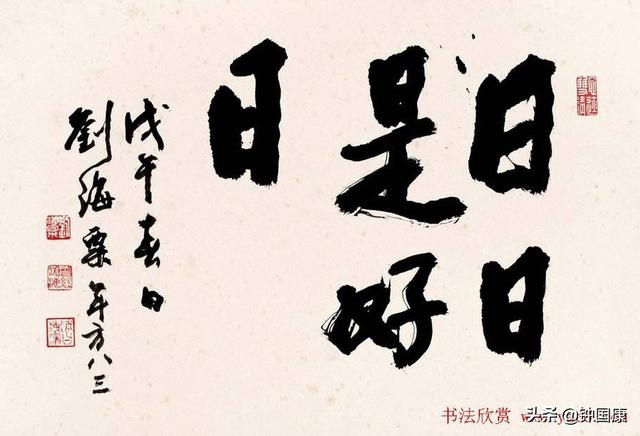 日日
是好
日
戊午春日
劉海粟年方八三
书法欣赏
头条@钟国康